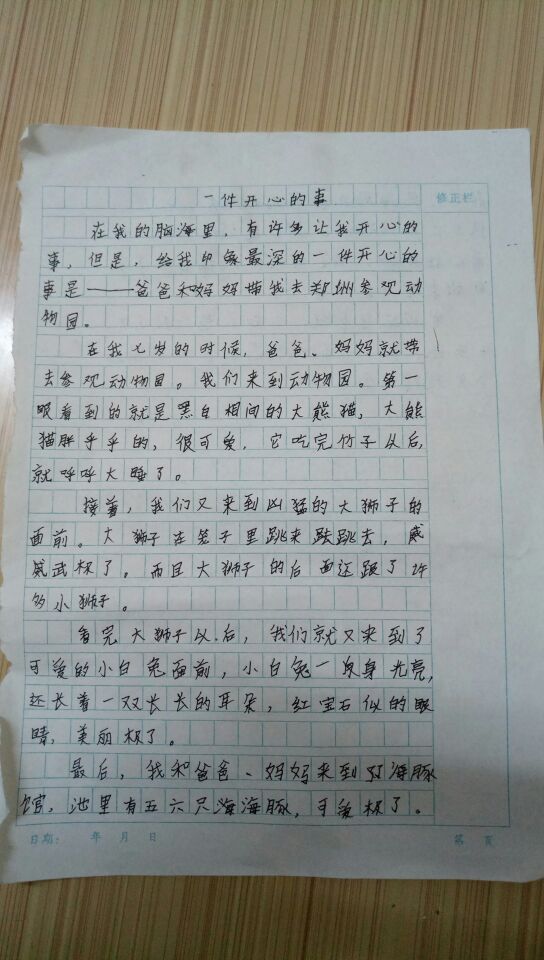 一件开心的事
修正栏
在我的脑海里，有许多让我开心的
事，但是，给我印象最深的一件开心的
事是——爸爸和妈妈带我去郑州参观动
物园。
在我七岁的时候，爸爸、妈妈就带
去参观动物园。我们来到动物园。第一
眼看到的就是黑白相间的大熊猫，大熊
猫胖乎乎的，很可爱，它吃完竹子以后，
就呼呼大睡了。
接着，我们又来到凶猛的大狮子的
面前。大狮子在笼子里跳来跳去，威
威武极了。而且大狮子的后面还跟了许
多小狮子。
看完大狮子以后，我们就又来到了
可爱的小白兔面前，小白兔一身光亮，
还长着一双长长的耳朵，红宝石似的眼
睛，美丽极了。
最后，我和爸爸、妈妈来到海豚
馆，池里有五六只海海豚，可爱极了。
日期： 年 月 日 第 页